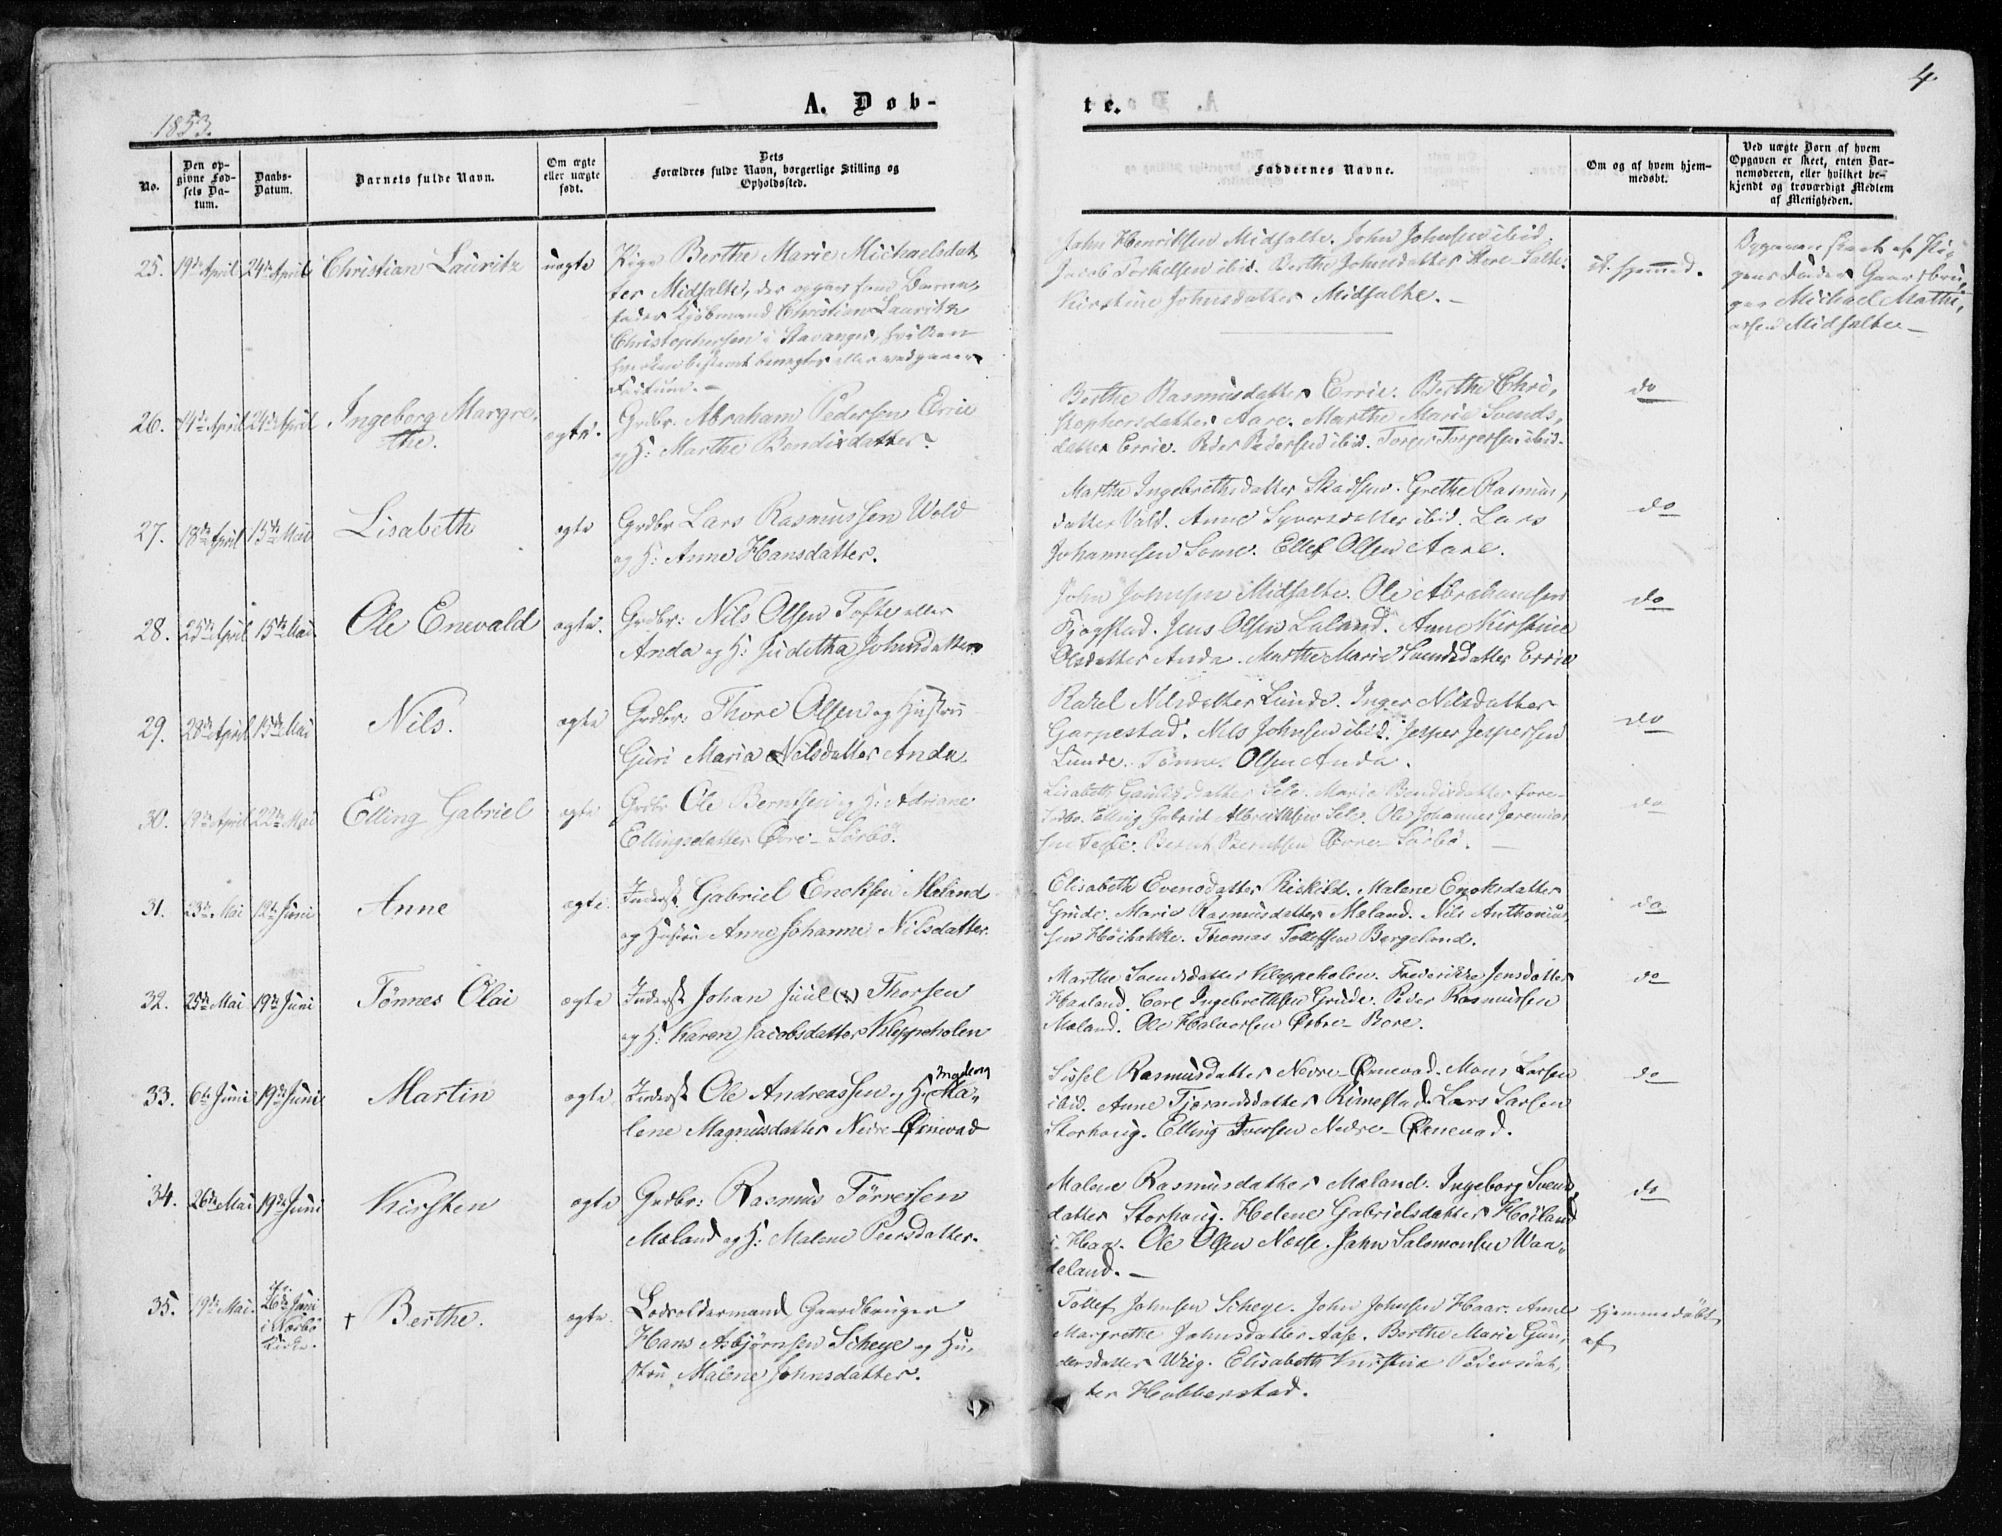 4.
1853.
A. Døb-
te.
No.
Den op-
givne Fød-
sels Da-
tum.
Daabs-
Datum.
Barnets fulde Navn.
Om ægte
eller uægte
født.
Dets
Forældres fulde Navn, borgerlige Stilling og
Opholdssted.
Faddernes Navne.
Om og af hvem hjem-
medøbt.
Ved uægte Børn af hvem
Opgaven er skeet, enten Bar-
nemoderen, eller hvilket be-
kjendt og troværdigt Medlem
af Menigheden.
25. 19de April 24de April Christian Lauritz uægte Pige Berthe Marie Michaelsdat
ter Midsalte, der opgav som Barne
fader Kjøbmand Christian Lauritz
Christophersen i Stavanger, hvilken
hverken bestemt benægter eller vedgaaer
John Henriksen Midsalte. John Johnsen ibid.
Jacob Torkelsen ibid. Berthe Johnsdatter Salte.
Kirstine Johnsdatter Midsalte. —
Opgaven skeet af Pi-
gens Fader Gaardbru-
ger Michael Mathi-
assen Midsalte —
26. 14de April 24de April Ingeborg Margre-
the. ægte. Grdbr. Abraham Pedersen Errie
og H: Marthe Bendixdatter.
Berthe Rasmusdatter Errie. Berthe Chri-
stophersdatter Aare. Marthe Marie Svends-
datter Errie. Peder Pedersen ibid. Torger Torgersen ibid.
do
27. 18de April 15de Mai Lisabeth ægte Grdbr Lars Rasmussen Wold
og H: Anne Hansdatter.
Marthe Ingebrethsdatter Skadsem. Grethe Rasmus-
datter Vold. Anne Syversdatter ibid. Lars
Johannesen Some. Ellef Olsen Aare.
do
28. 25de April 15de Mai. Ole Enevald ægte. Grdbr: Nils Olsen Tofte eller
Anda og H: Juditha Johnsdatter
John Johnsen Midsalte. Ole Abrahamsen
Fjogstad. Jens Olsen Laland. Anne Kirstine
Olsdatter Anda. Marthe Marie Svendsdatter Errie
do
29. 28de April 15de Mai Nils. ægte Grdbr: Thore Olsen og Hustru
Guri Maria Nilsdatter Anda.
Rakel Nilsdatter Lunde. Inger Nilsdatter
Garpestad. Nils Johnsen ibid. Jesper Jespersen
Lunde. Tønnes Olsen Anda.
do
30. 19de April 22de Mai Elling Gabriel ægte Grdbr Ole Berntsen og H: Adriane
Ellingsdatter Øvre-Sørbö.
Lisabeth datter Sele. Marie Bendixdatter Øvre-
Elling Gabriel Albretthsen Sele. Ole Johannes Jeremias
sen Berent Berentsen Øvre-Sörbö. —
do
31. 23de Mai 12te Juni Anne ægte. Inderst Gabriel Enoksen Mæland
og Hustru Anne Johanne Nilsdatter.
Elisabeth Evensdatter Riskild. Malene Enoksdatter
Grude. Marie Rasmusdatter Mæland. Nils Anthonius
sen Höihakke. Thomas Tollefsen Bergeland.
do
32. 25de Mai 19de Juni Tönnes Olai ægte Inderst Johan Juul Thorsen
og H: Karen Jacobsdatter Kleppeholen
Marthe Svendsdatter Kleppeholen. Frederikke Jensdatter
Haaland. Carl Ingebretsen Grude. Peder Rasmussen
Mæland. Ole Halvorsen Østre-Bore.
do
33. 6te Juni 19de Juni Martin ægte Inderst Ole Andreassen og H: Ma-
lene Magnusdatter Nedre-Örnevad
Sissel Rasmusdatter Nedre-Örnevad. Mons Larsen
ibid. Anne Tjerandsdatter Rimestad. Lars Larsen
Storhoug. Elling Iversen Nedre-Örnevad.
do
34. 26de Mai 19de Juni Kirsten ægte Grdbr: Rasmus Törresen
Mæland og H: Malene Peersdatter.
Malene Rasmusdatter Mæland. Ingeborg Svends
datter Storhoug. Helene Gabrielsdatter Höiland
i Haa. Ole Olsen Næsse. John Salomonsen Waa-
deland. —
do
35. 19de Mai. 26de Juni
i Nærbö
Kirke. † Berthe. ægte. Lodsoldermand Gaardbruger
Hans Asbjørnsen Scheye og Hu-
stru Malene Johnsdatter.
Tollef Johnsen Scheye. John Johnsen Haar. Anne
Margrethe Johnsdatter Aase. Berthe Marie Gun-
dersdatter Wiig. Elisabeth Kirstine Pedersdat-
ter Hobberstad.
Hjemmedøbt
af